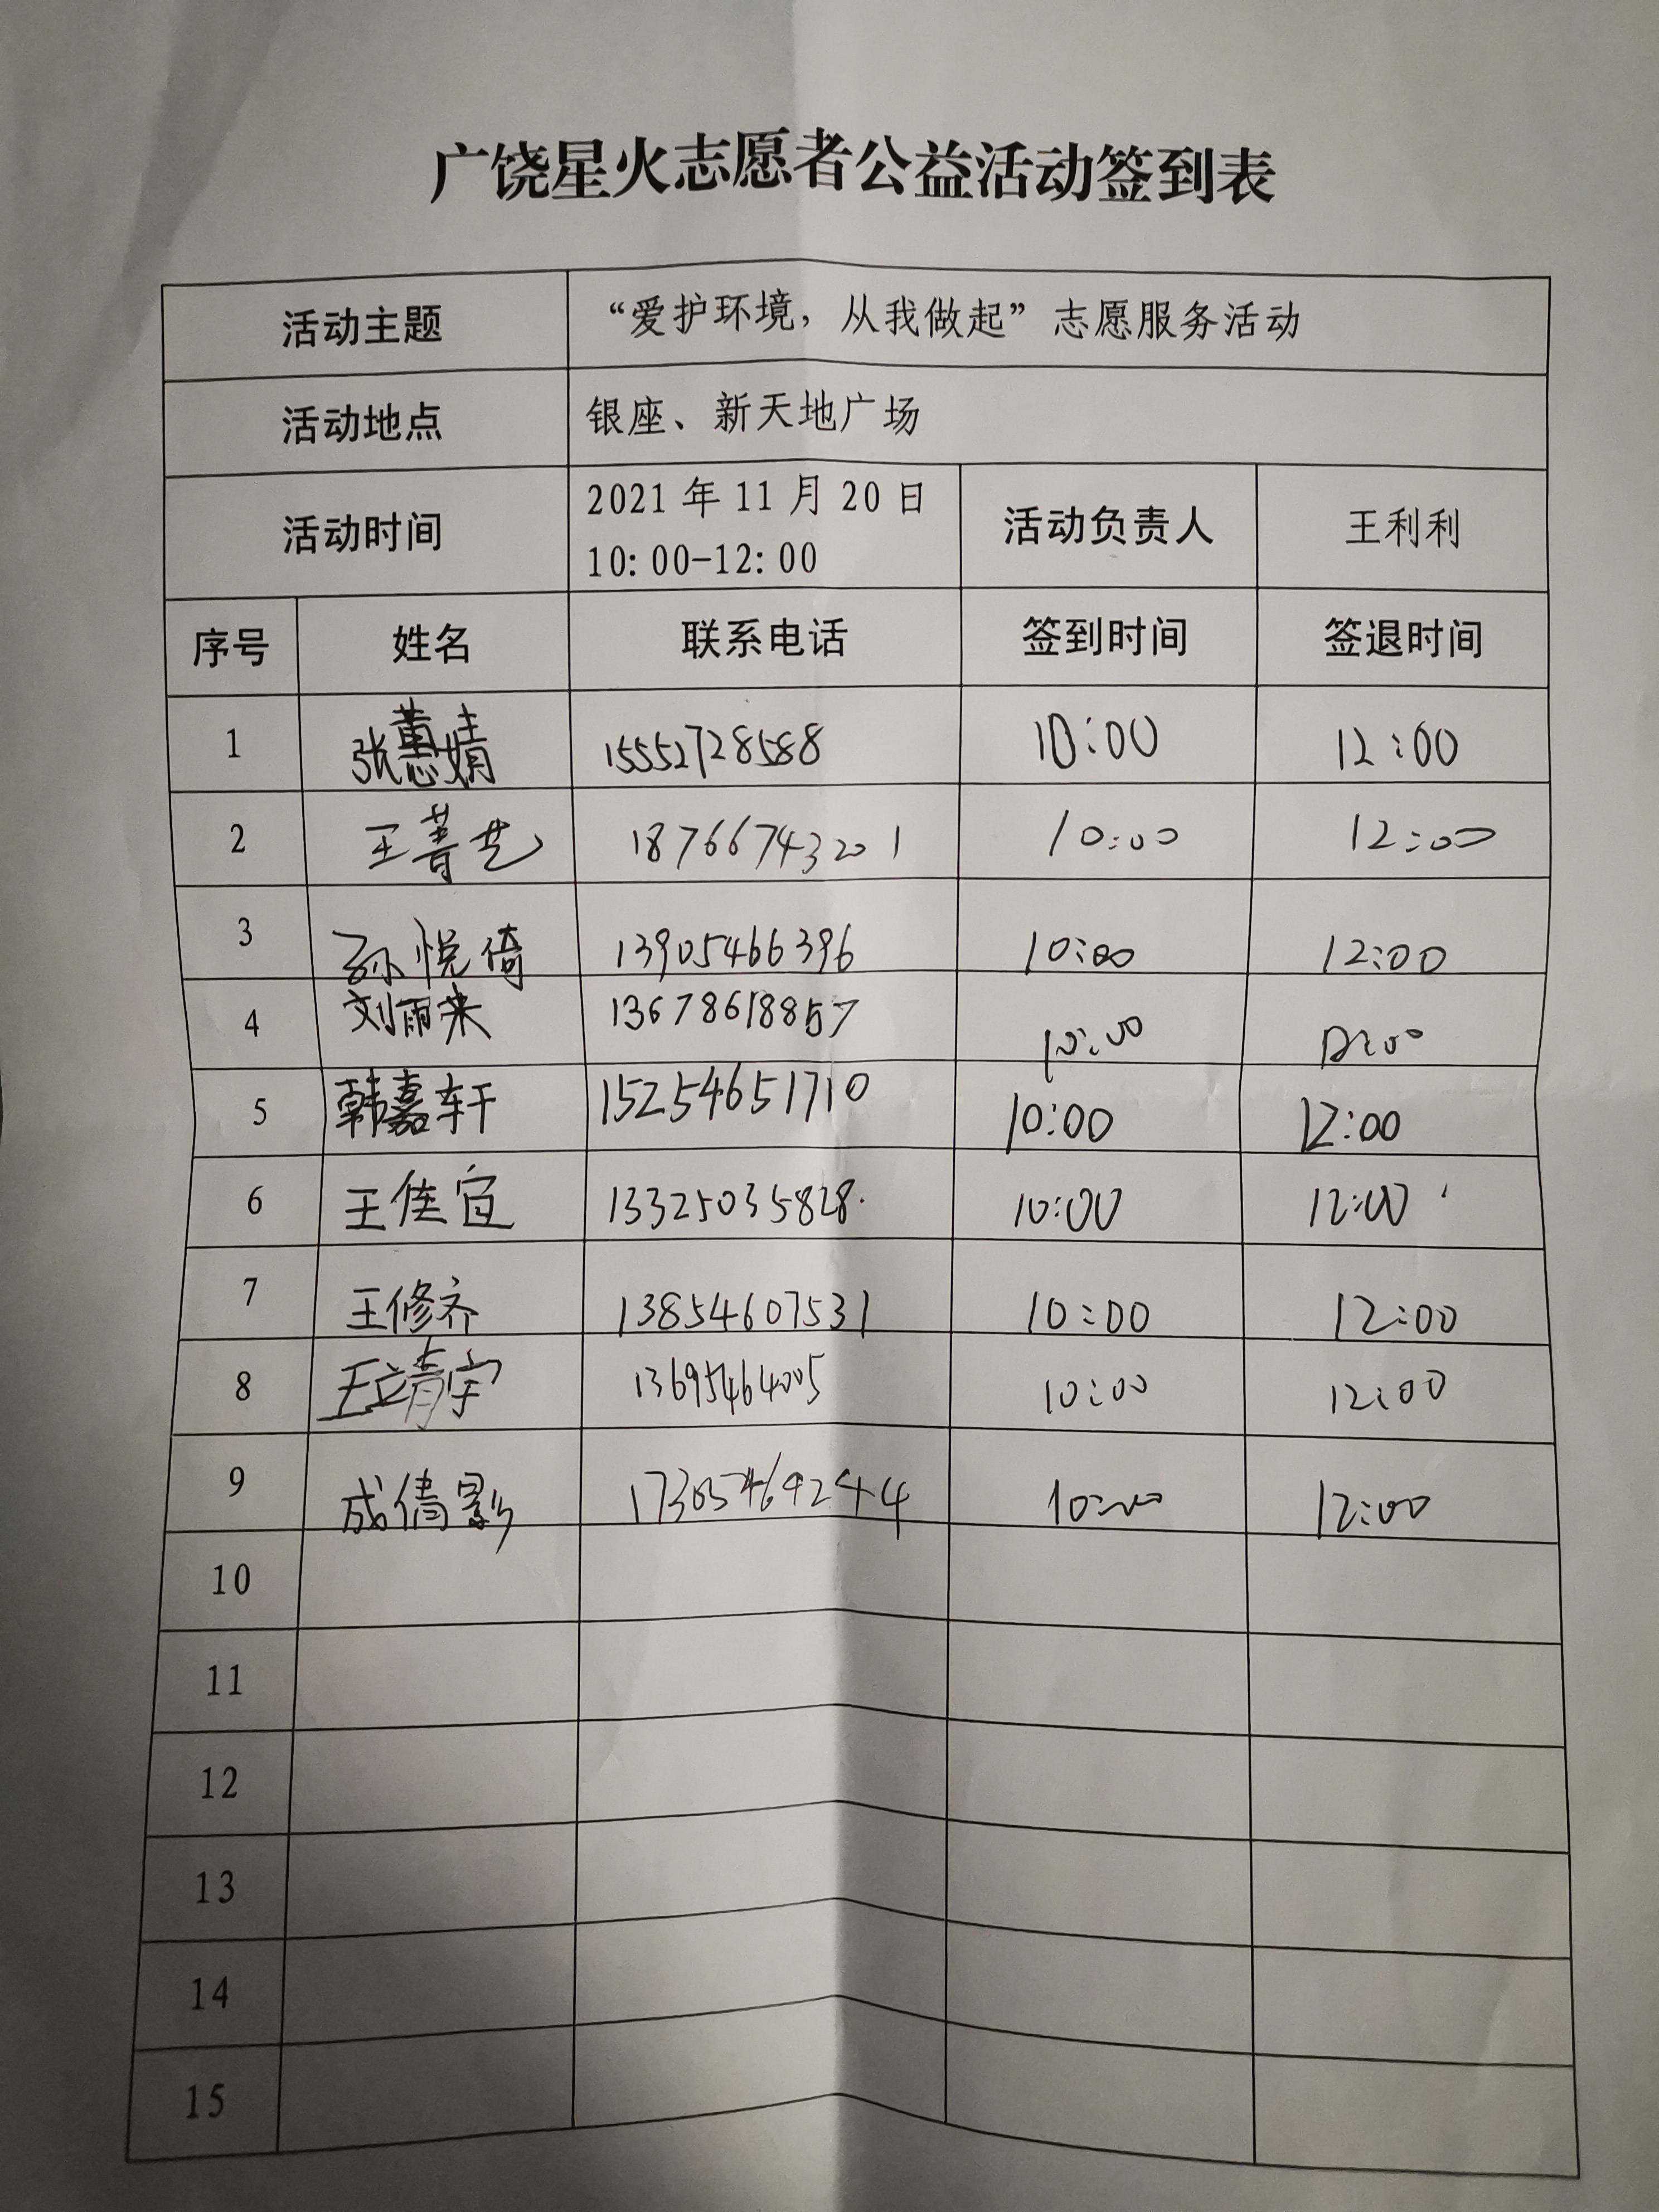 广饶星火志愿者公益活动签到表
活动主题 “爱护环境，从我做起”志愿服务活动
活动地点 银座、新天地广场
活动时间 2021年11月20日 10:00-12:00 活动负责人 王利利
序号 姓名 联系电话 签到时间 签退时间
1 张蕙婧 15552728588 10:00 12:00
2 王菁艺 18766743201 10:00 12:00
3 孙悦倚 13905466396 10:00 12:00
4 刘雨来 13678618857 10:00 12:00
5 韩嘉轩 15254651710 10:00 12:00
6 王佳宜 13325035828 10:00 12:00
7 王修齐 13854607531 10:00 12:00
8 王靖宇 13695464005 10:00 12:00
9 成倩影 17305469244 10:00 12:00
10
11
12
13
14
15